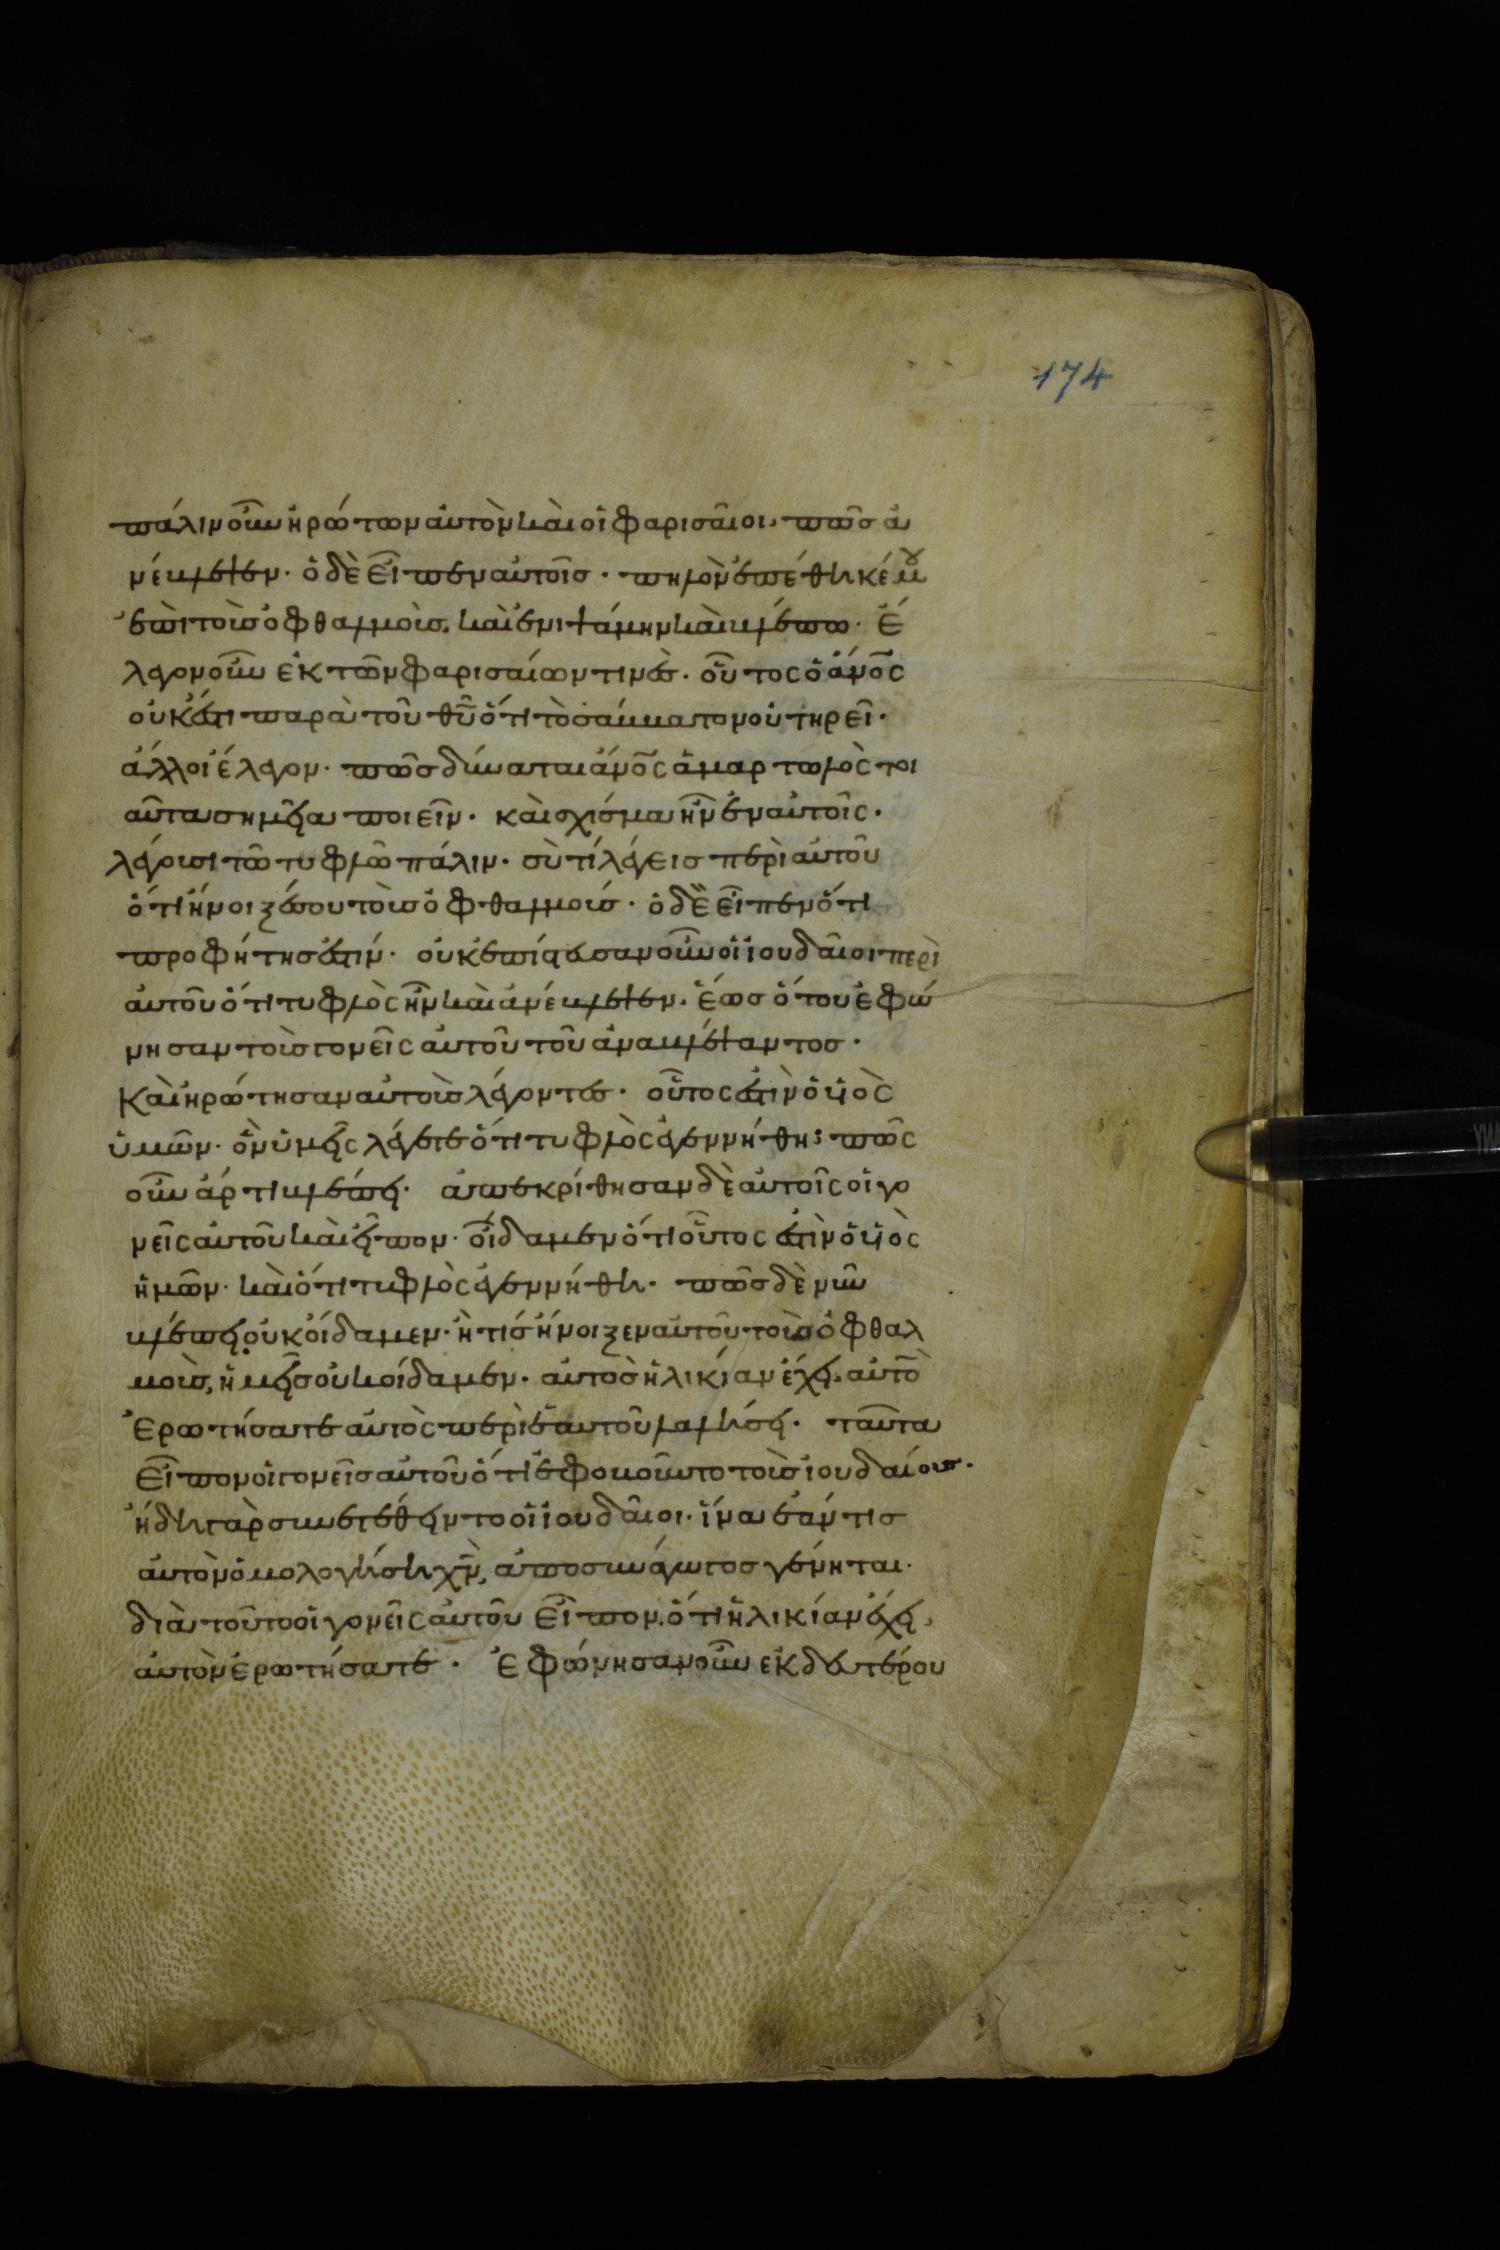 174
πάλιν οὖν ἠρώτων αὐτὸν καὶ οἱ φαρισαῖοι· πῶς ἀ
νέβλεψεν· ὁ δὲ εἶπεν αὐτοῖς· πηλὸν ἐπέθηκέ μου
ἐπὶ τοὺς ὀφθαλμοὺς, καὶ ἐνιψάμην καὶ βλέπω· Ἔ
λεγον οὖν ἐκ τῶν φαρισαίων τινές· οὗτος ὁ ἄνος
οὐκ ἔστι παρὰ τοῦ θυ ὅτι τὸ σάββατον οὐ τηρεῖ·
ἄλλοι ἔλεγον· πῶς δύναται ἄνος ἁμαρτωλὸς τοι
αῦτα σημεῖα ποιεῖν· καὶ σχίσμα ἦν ἐν αὐτοῖς·
λέγουσι τῶ τυφλῶ πάλιν· σὺ τί λέγεις περὶ αὐτοῦ
ὅτι ἤνοιξέ σου τοὺς ὀφθαλμούς· ὁ δὲ εἶπεν ὅτι
προφήτης ἐστίν· οὐκ ἐπίστευσαν οὖν οἱ ἰουδαῖοι περὶ
αὐτοῦ ὅτι τυφλὸς ἦν καὶ ἀνέβλεψεν· ἕως ὅτου ἐφώ
νησαν τοὺς γονεῖς αὐτοῦ τοῦ ἀναβλέψαντος·
Καὶ ἠρώτησαν αὐτοὺς λέγοντες· οὗτος ἐστὶν ὁ υἱὸς
ὑμῶν· ὃν ὑμεῖς λέγετε ὅτι τυφλὸς ἐγεννήθη; πῶς
οὖν ἄρτι βλέπει· ἀπεκρίθησαν δὲ αὐτοῖς οἱ γο
νεῖς αὐτοῦ καὶ εἶπον· οἴδαμεν ὅτι οὗτος ἐστὶν ὁ υἱὸς
ἡμῶν· καὶ ὅτι τυφλὸς ἐγεννήθη· πῶς δὲ νῦν
βλέπει, οὐκ οἴδαμεν· ἢ τίς ἤνοιξεν αὐτοῦ τοὺς ὀφθαλ
μοὺς, ἡμεῖς οὐκ οἴδαμεν· αὐτὸς ἡλικίαν ἔχει, αὐτὸ
Ἐρωτήσατε αὐτὸς περὶ ἑαυτοῦ λαλήσει· ταῦτα
Εἶπον οἱ γονεῖς αὐτοῦ ὅτι ἐφοβοῦντο τοὺς ἰουδαίους·
ἤδη γὰρ συνετέθειντο οἱ ἰουδαῖοι· ἵνα ἐάν τις
αὐτὸν ὁμολογήση χν, ἀποσυνάγωγος γένηται·
διὰ τοῦτο οἱ γονεῖς αὐτοῦ εἶπον, ὅτι ἡλικίαν ἔχει,
αὐτὸν ἐρωτήσατε· Ἐφώνησαν οὖν ἐκ δευτέρου